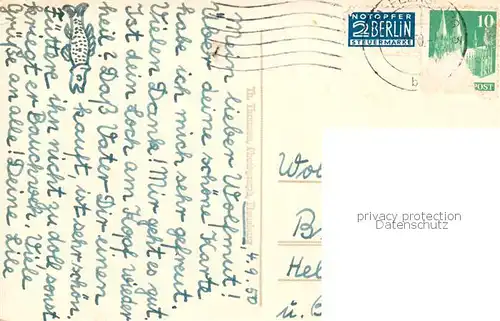 4.9.50
Mein lieber Wolfmut!
Über deine schöne Karte
habe ich mich sehr gefreut.
Vielen Dank! Mir geht es gut.
Ist dein Loch am Kopf wieder
heil? Daß Vater Dir einen
kauft, ist sehr schön.
Füttere ihn nicht zu doll sonst
kriegt er Bauchweh. Viele
Grüße an alle! Deine Lile
NOTOPFER
2 BERLIN
STEUERMARKE
10
POST
Hel
u.
privacy protection
Datenschutz